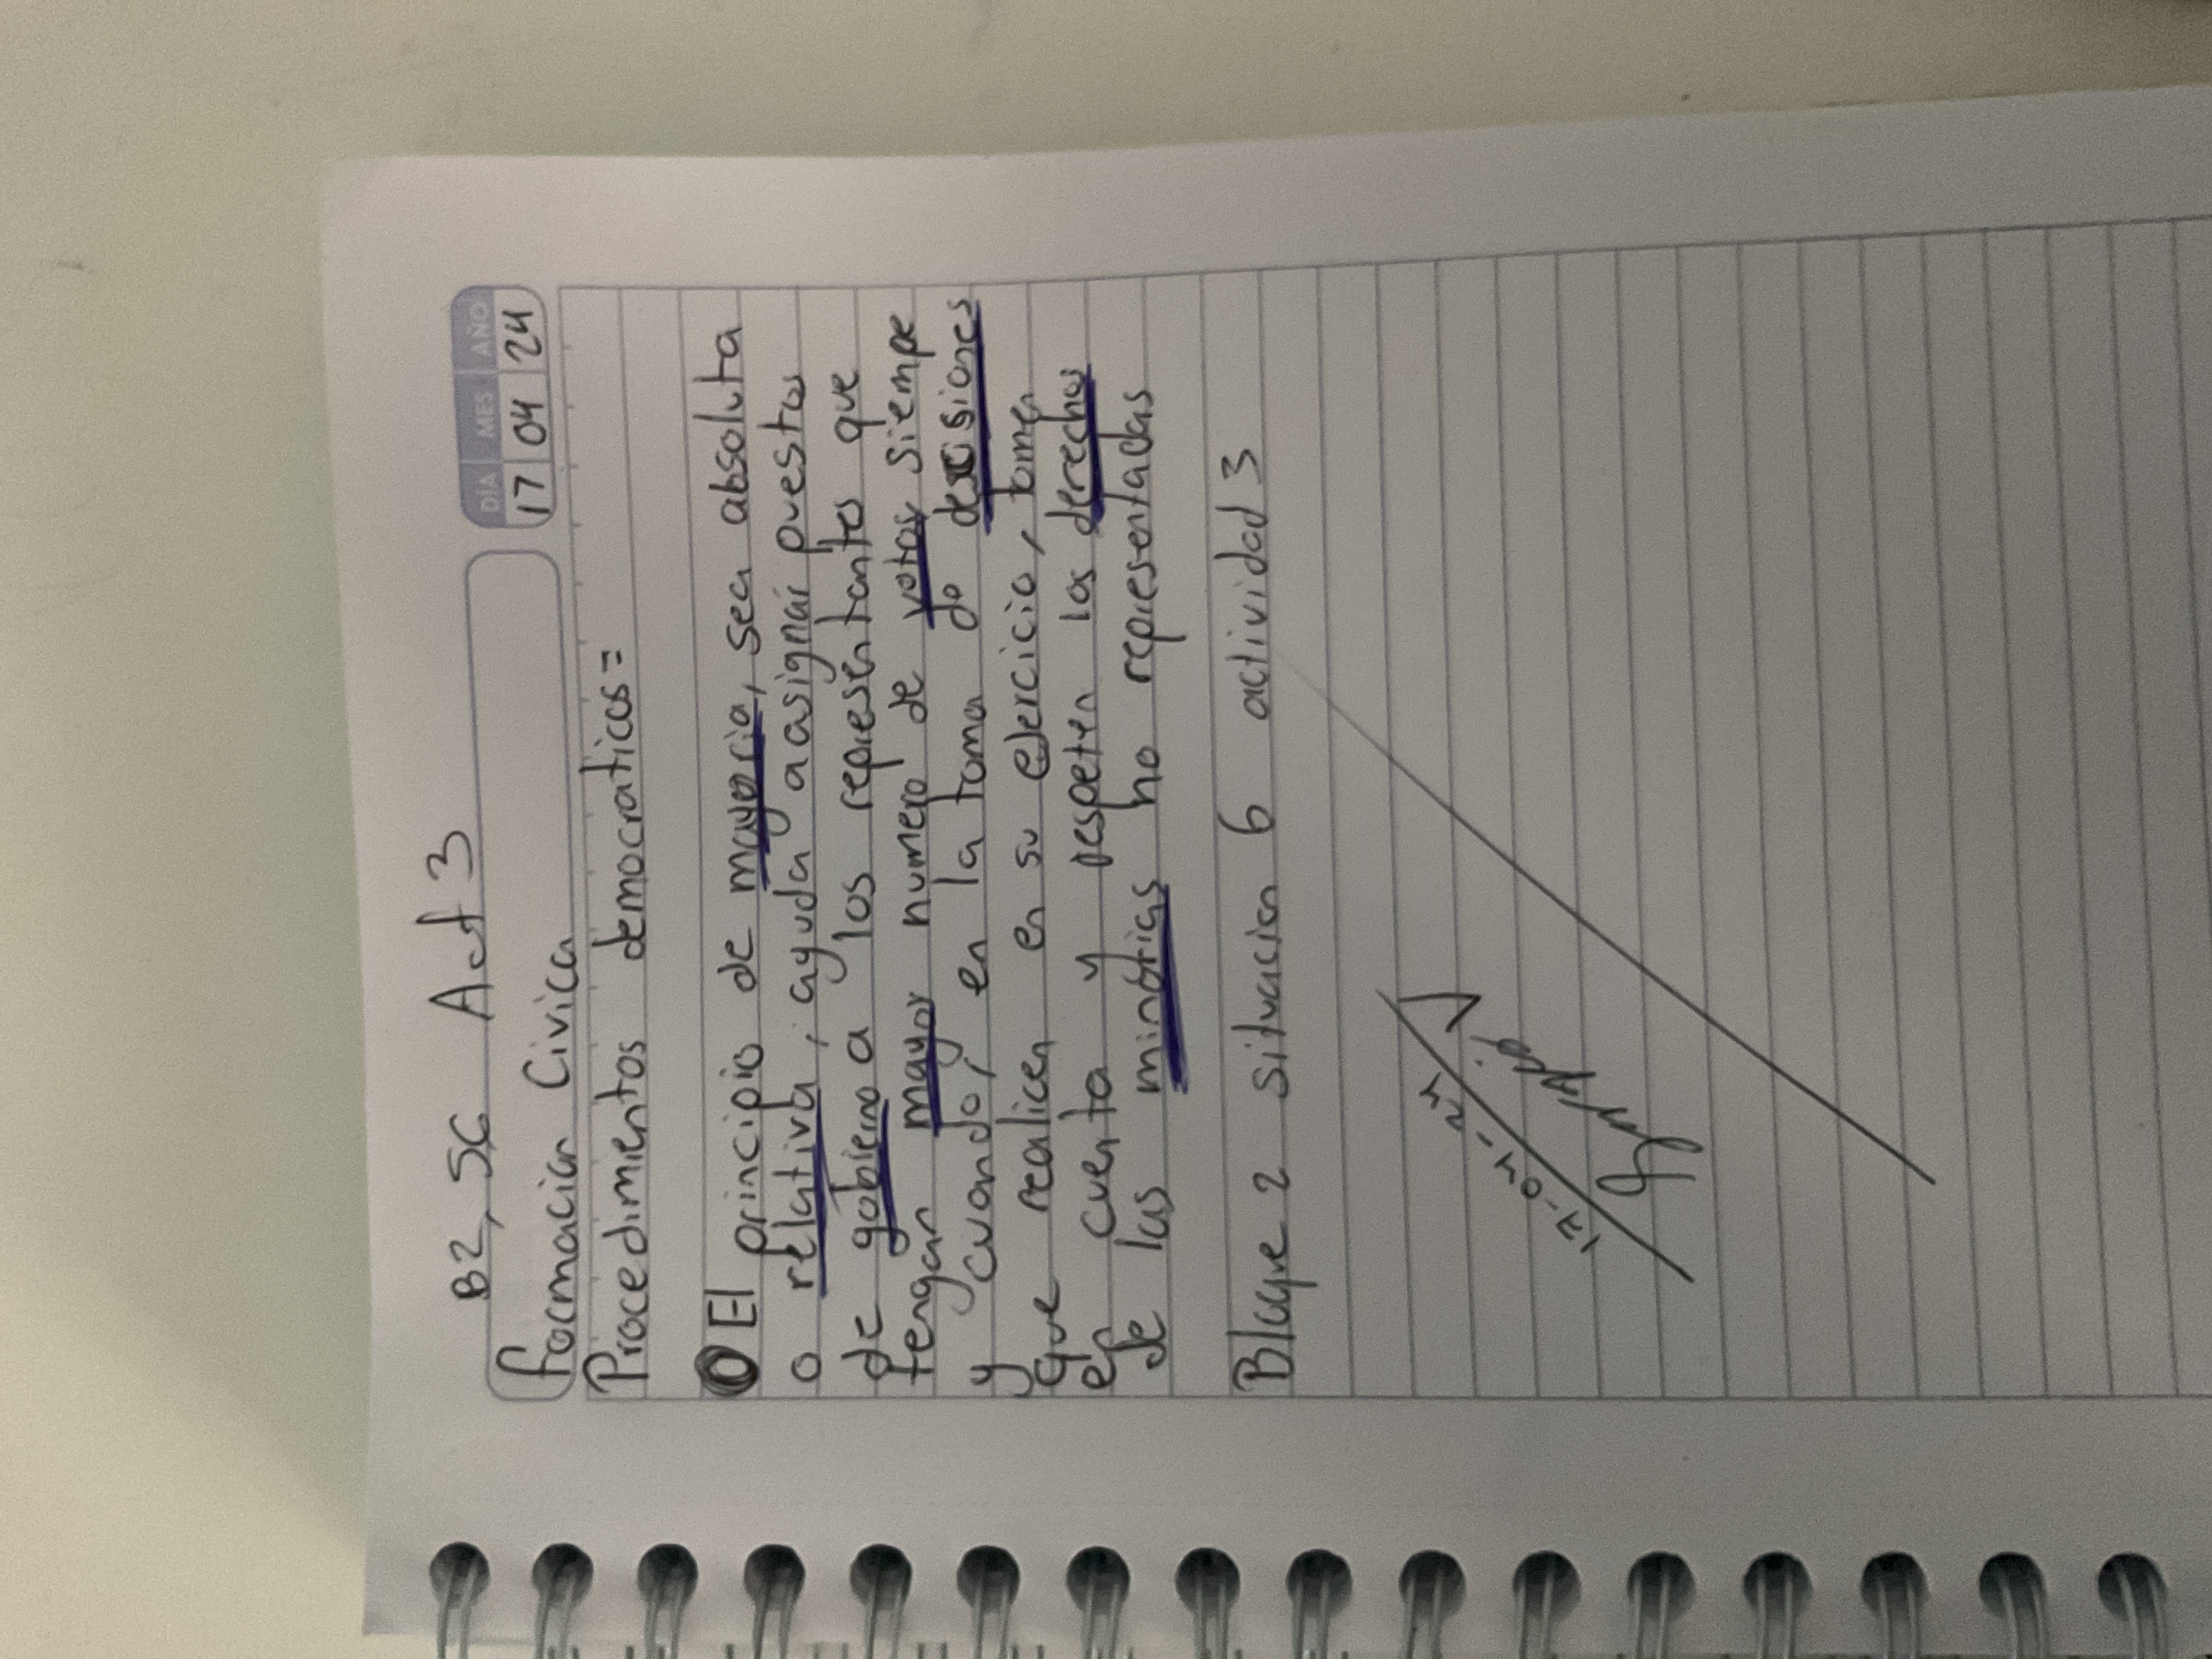 B2, SC Act 3
DÍA MES AÑO
17 04 24
formacion Civica
Procedimientos democraticos=
El principio de mayoria, sea absoluta
o relativa, ayuda a asignar puestos
de gobierno a los representantes que
tengan mayor numero de votos siempe
y cuando, en la toma de desicisiones
que realicen en su ejercicio, tomen
en cuenta y respeten los derechos
de las minorias no representadas
Bloque 2 situacion 6 actividad 3